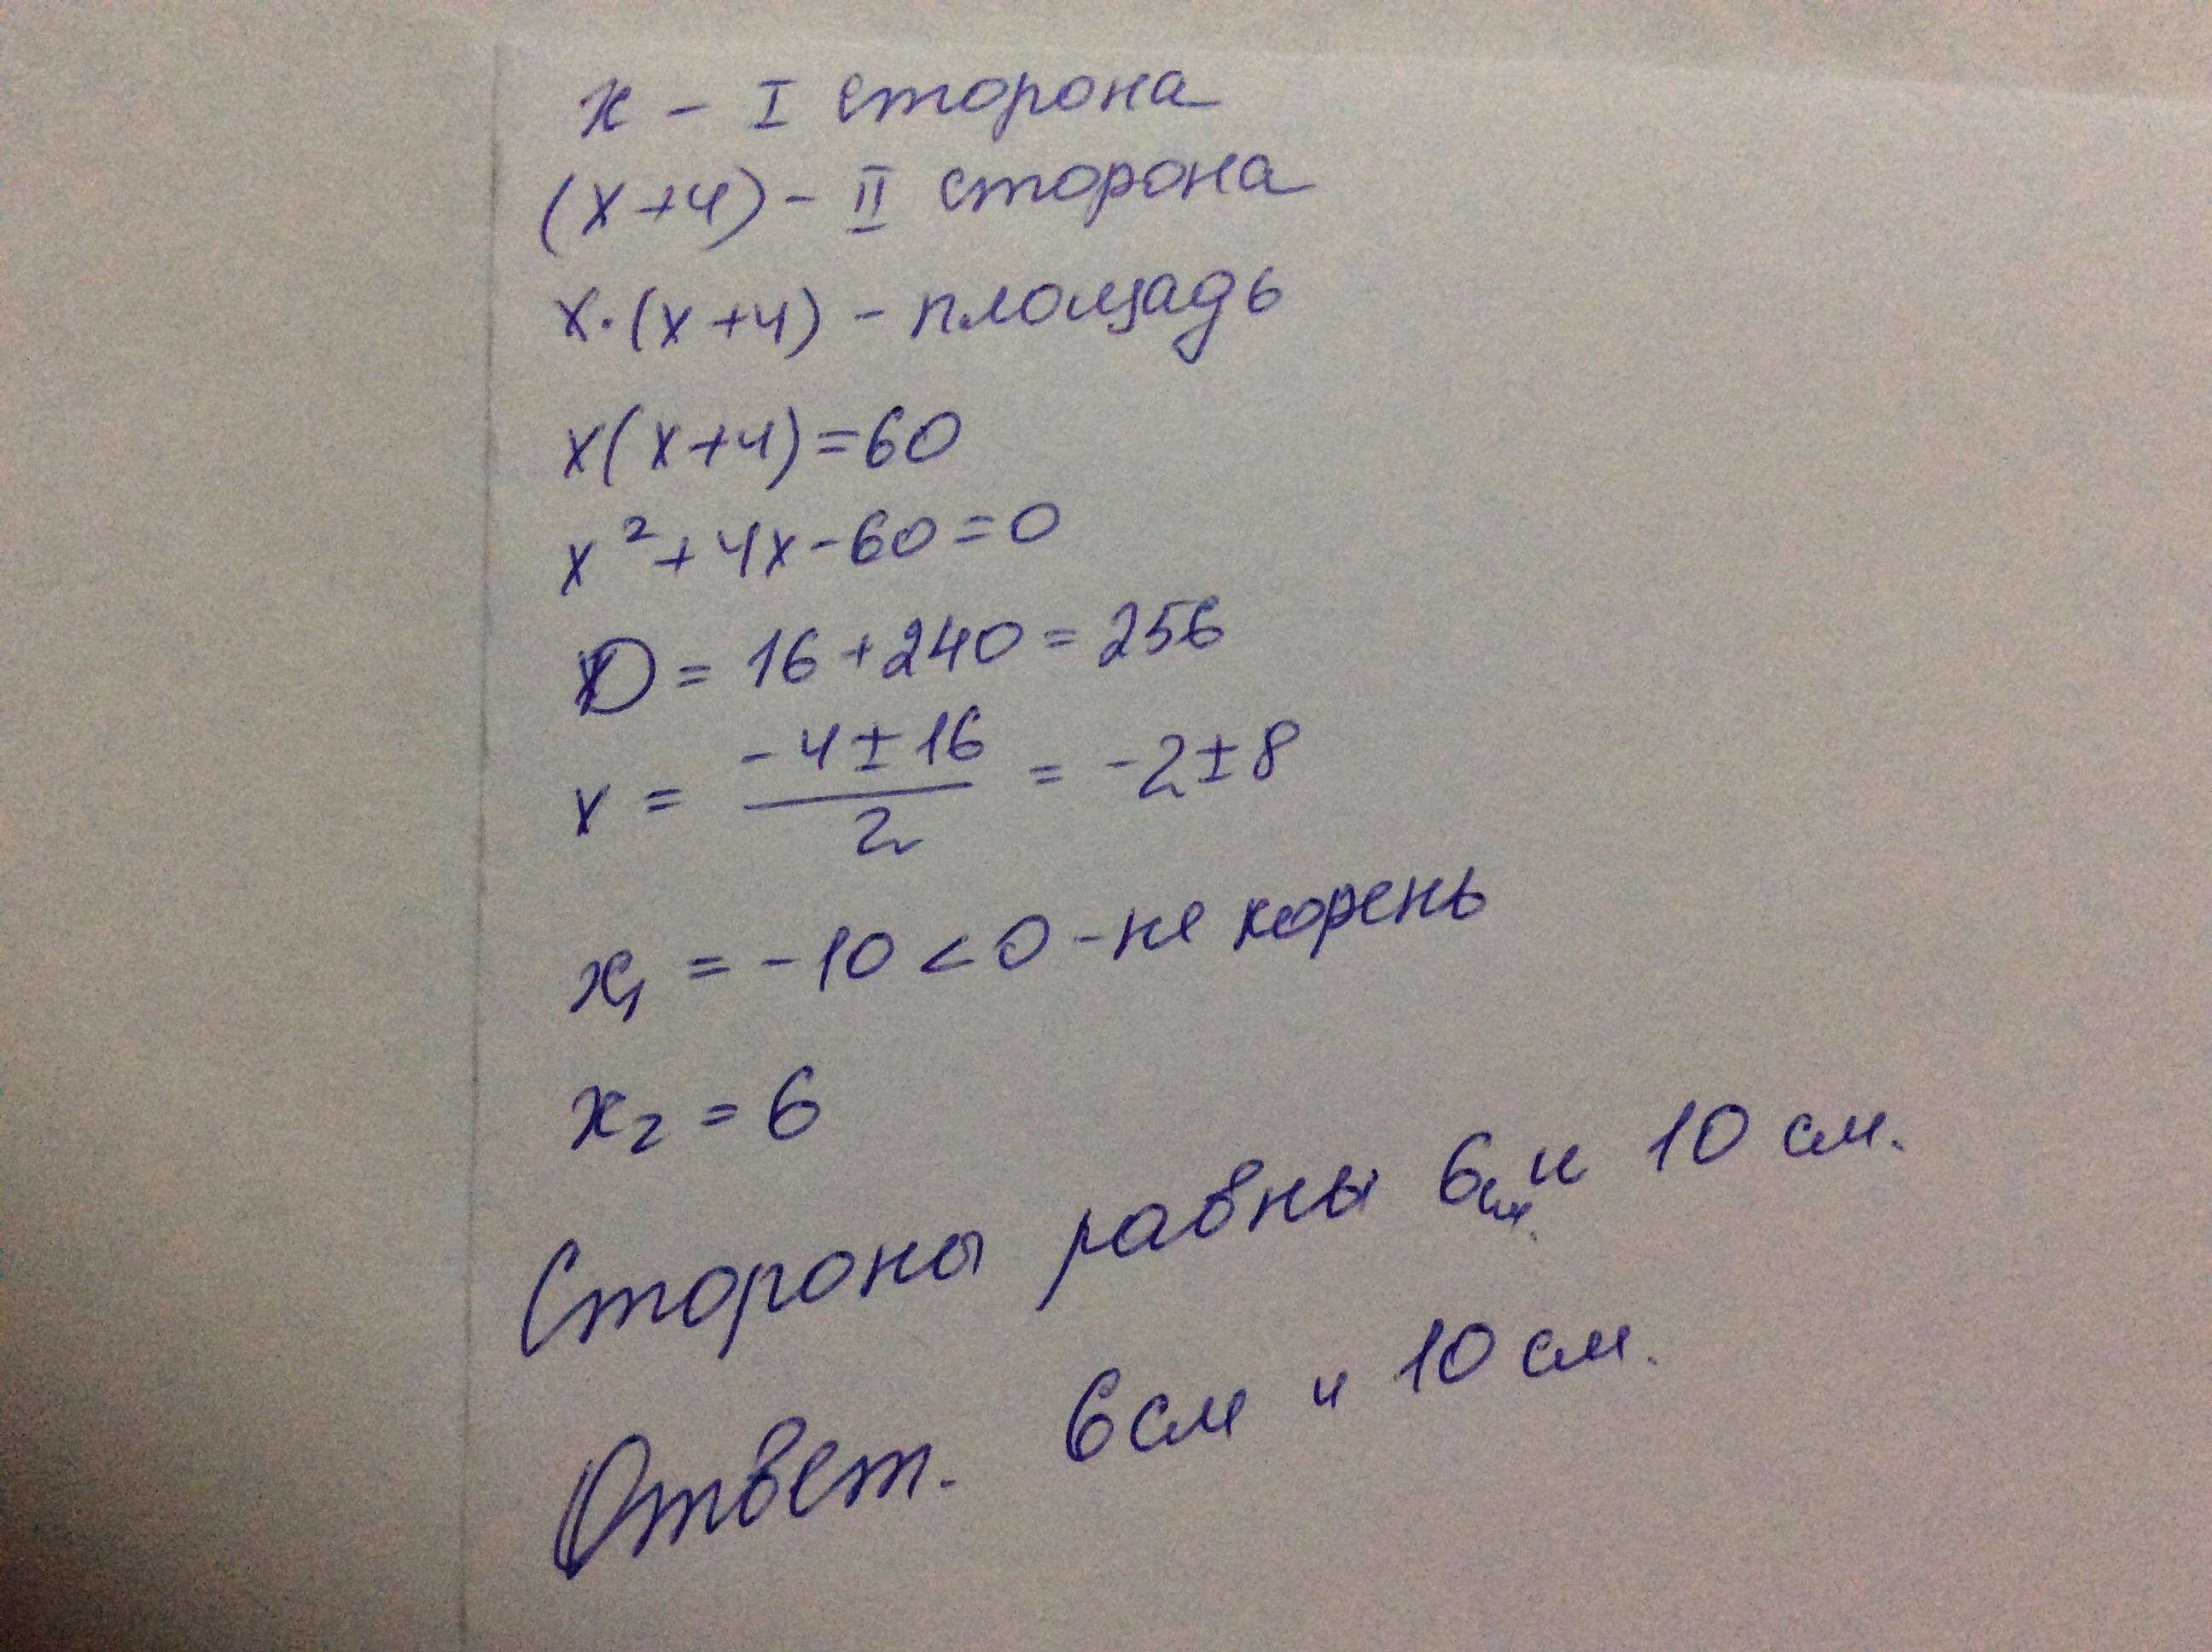 x - I сторона
(x+4) - II сторона
x·(x+4) - площадь
x(x+4)=60
x²+4x-60=0
D = 16+240 = 256
x = (-4±16)/2 = -2±8
x₁ = -10 < 0 - не корень
x₂ = 6
Стороны равны 6см. и 10 см.
Ответ. 6см и 10 см.